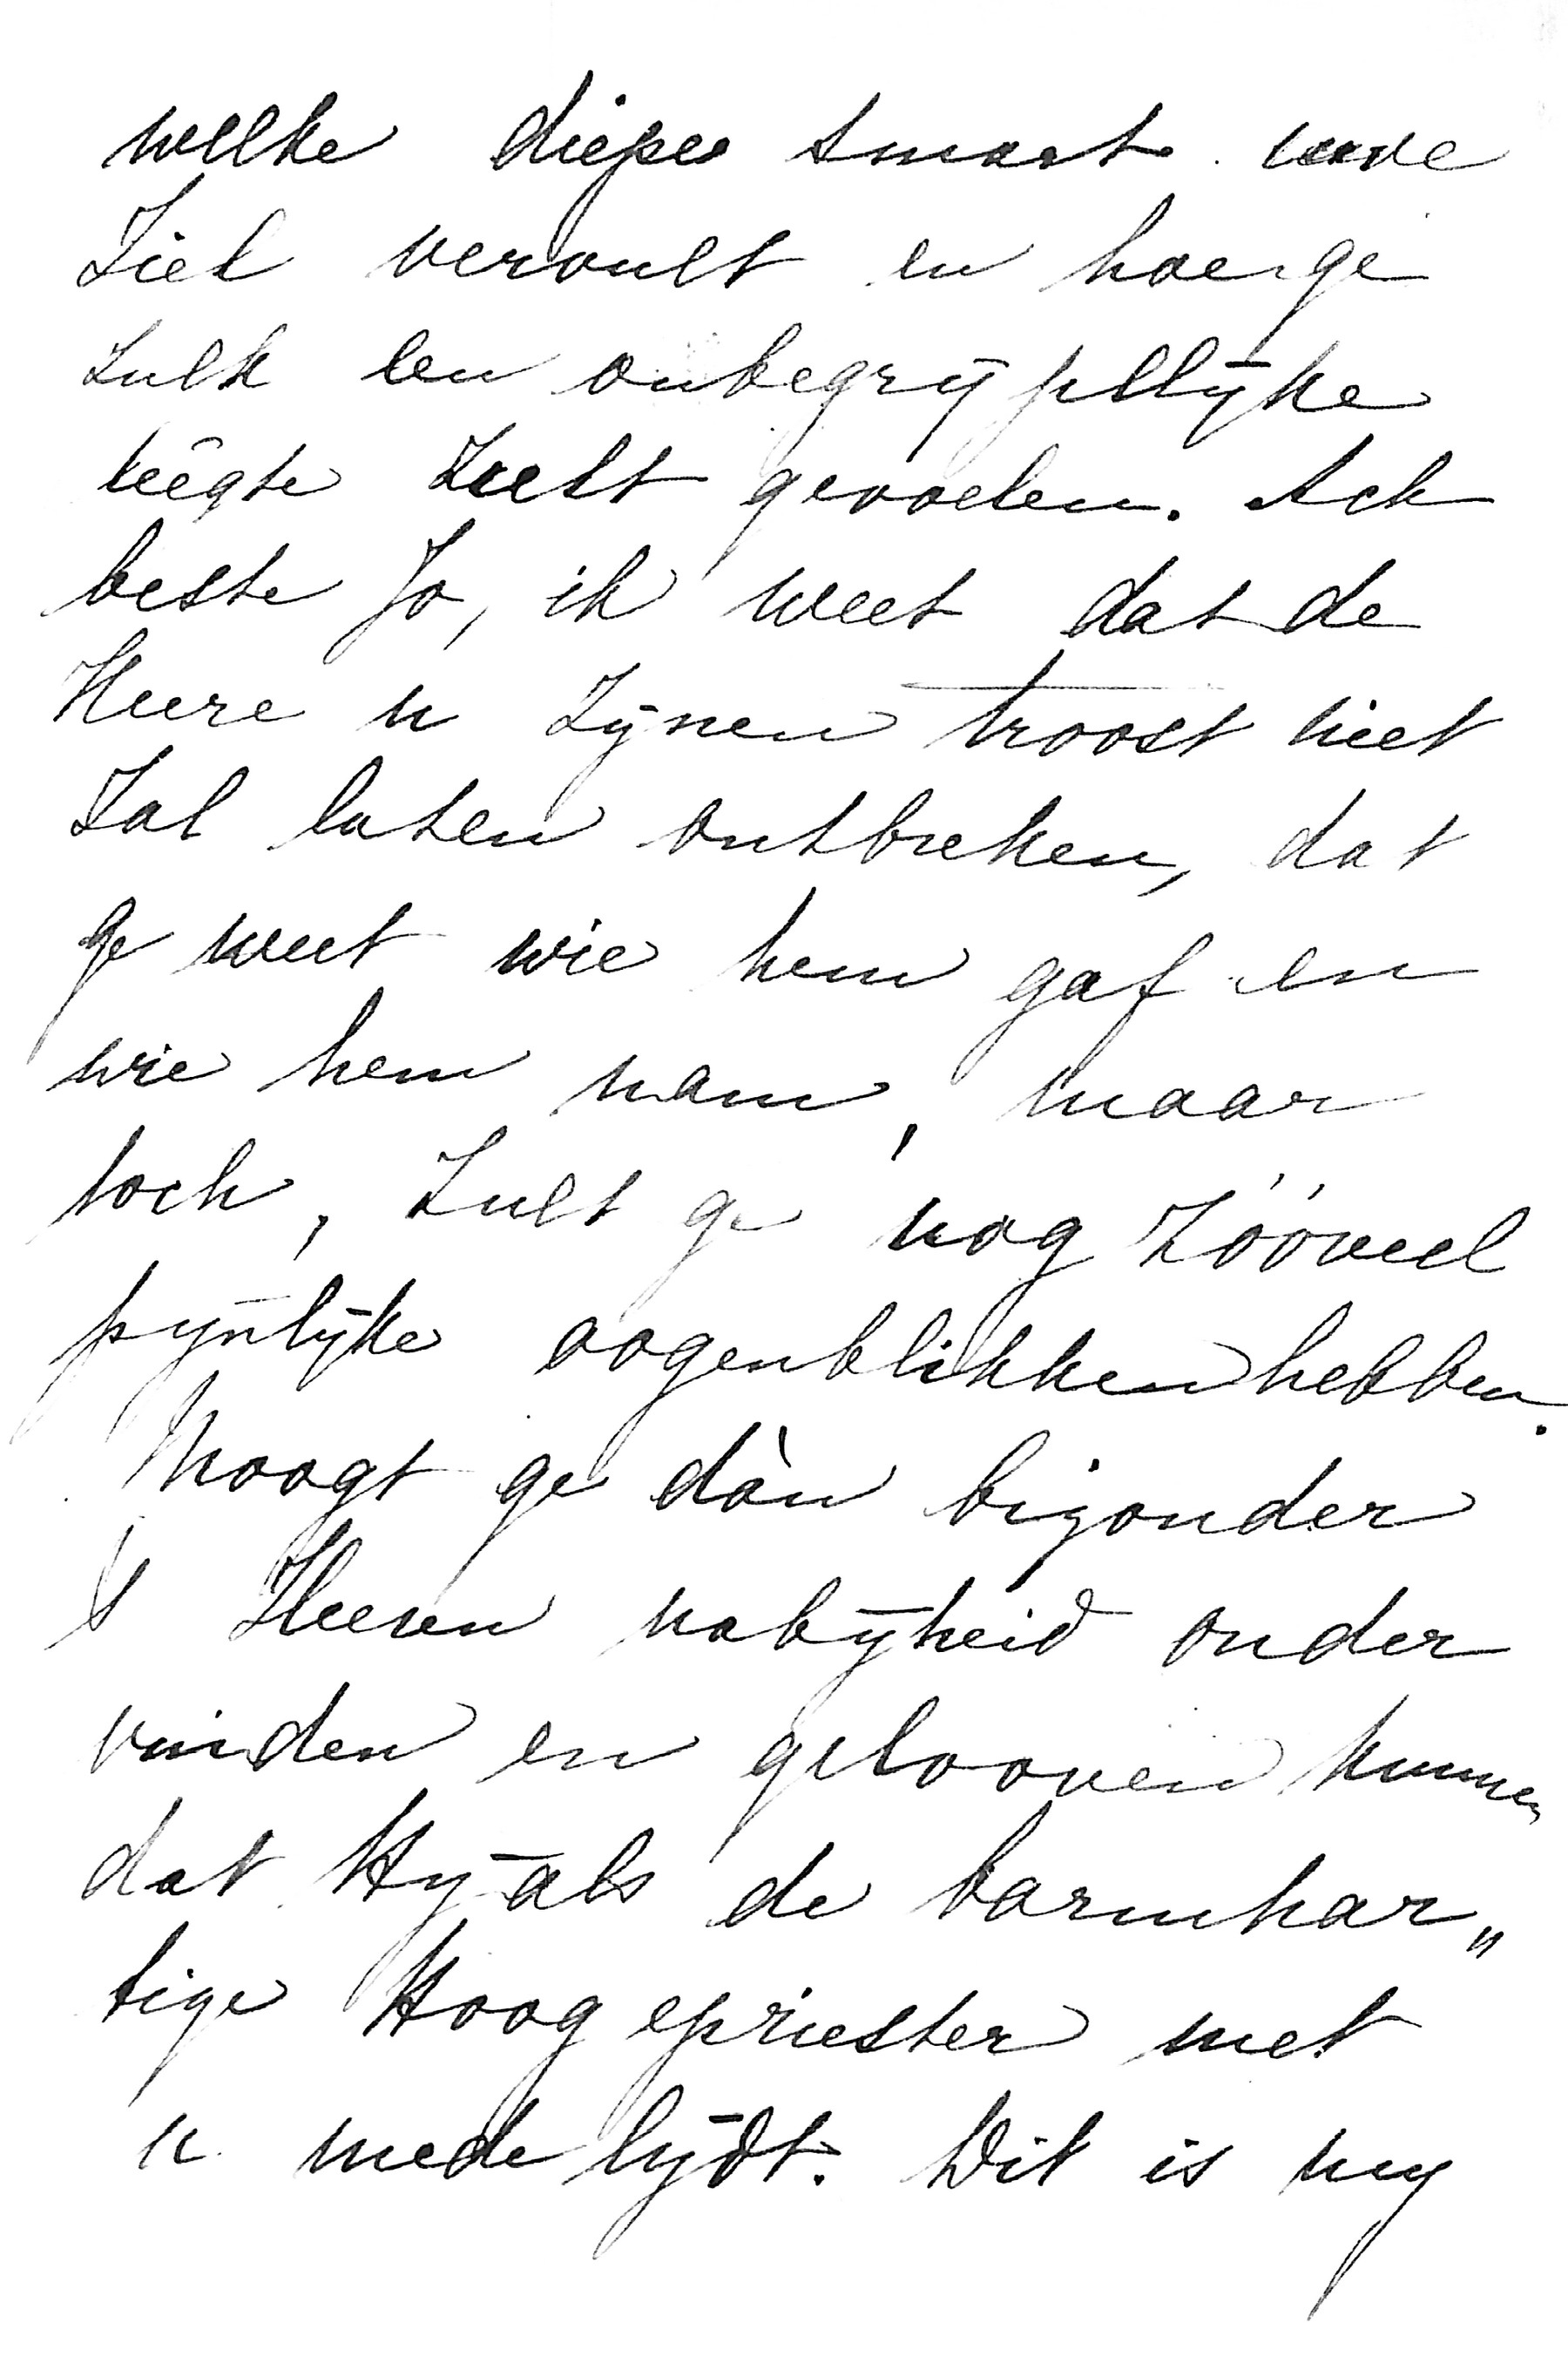 welke diepe smart uwe
Ziel vervult en hoe ge
Zulk een onbegrijpelijke
leêgte Zult gevoelen. Ach
beste Jo, ik weet dat de
Heere u Zynen troost niet
Zal laten ontbreken, dat
ge weet wie hem gaf en
wie hem nam, maar
toch, Zult ge nog Zóóveel
pijnlijke oogenblikken hebben.
Moogt ge dàn bizonder
's Heeren nabijheid onder
vinden en gelooven kunnen
dat Hij als de barmhar„
tige Hoogepriester met
u mede lijdt. Dit is my